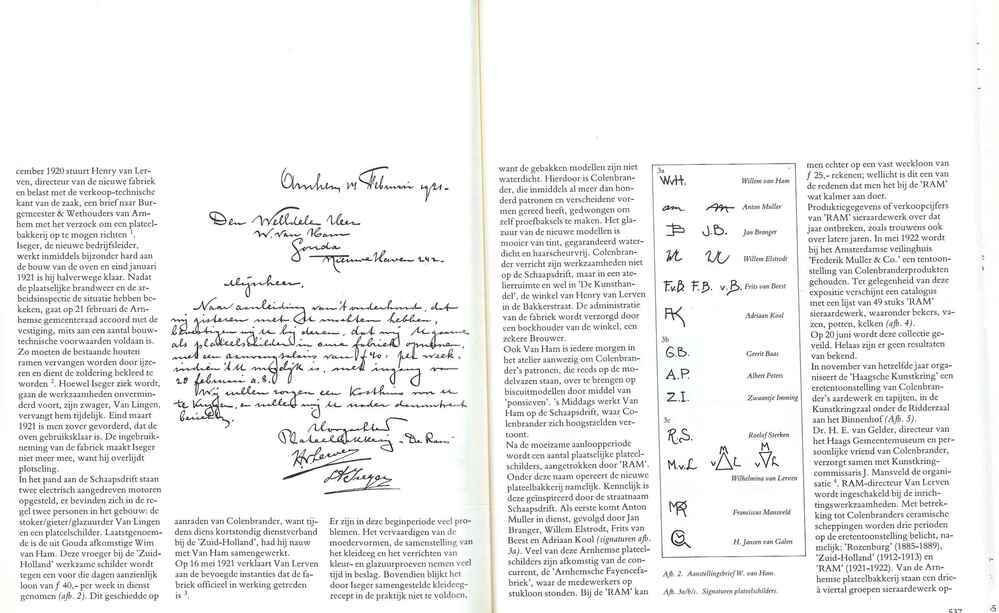 cember 1920 stuurt Henry van Ler-
ven, directeur van de nieuwe fabriek
en belast met de verkoop-technische
kant van de zaak, een brief naar Bur-
gemeester & Wethouders van Arn-
hem met het verzoek om een plateel-
bakkerij op te mogen richten 1.
Iseger, de nieuwe bedrijfsleider,
werkt inmiddels bijzonder hard aan
de bouw van de oven en eind januari
1921 is hij halverwege klaar. Nadat
de plaatselijke brandweer en de ar-
beidsinspectie de situatie hebben be-
keken, gaat op 21 februari de Arn-
hemse gemeenteraad accoord met de
vestiging, mits aan een aantal bouw-
technische voorwaarden voldaan is.
Zo moeten de bestaande houten
ramen vervangen worden door ijze-
ren en dient de zoldering bekleed te
worden 2. Hoewel Iseger ziek wordt,
gaan de werkzaamheden onvermin-
derd voort, zijn zwager, Van Lingen,
vervangt hem tijdelijk. Eind maart
1921 is men zover gevorderd, dat de
oven gebruiksklaar is. De ingebruik-
neming van de fabriek maakt Iseger
niet meer mee, want hij overlijdt
plotseling.
In het pand aan de Schaapsdrift staan
twee electrisch aangedreven motoren
opgesteld, er bevinden zich in de re-
gel twee personen in het gebouw: de
stoker/gieter/glazuurder Van Lingen
en een plateelschilder. Laatstgenoem-
de is de uit Gouda afkomstige Wim
van Ham. Deze vroeger bij de 'Zuid-
Holland' werkzame schilder wordt
tegen een voor die dagen aanzienlijk
loon van f 40,- per week in dienst
genomen (afb. 2). Dit geschiedde op
Arnhem 17 Februari 1921.-
Den Weledelen Heer
W. van Ham
Gouda
Nieuwe Haven 242.
Mijnheer,
Naar aanleiding van 't onderhoud, dat
wij gisteren met U mochten hebben,
bevestigen wij U bij dezen, dat wij U gaarne
als plateelschilder in onze fabriek opnemen,
met een aanvangsalaris van f 40.- per week,
indien 't U mogelijk is, met ingang van
28 februari a.s.
Wij zullen zorgen een Kosthuis voor U
te krijgen, en zullen wij U nader daaromtrent
berichten.
Hoogachtend
Plateelbakkerij „De Ram"
HvLerven
Iseger
aanraden van Colenbrander, want tij-
dens diens kortstondig dienstverband
bij de 'Zuid-Holland', had hij nauw
met Van Ham samengewerkt.
Op 16 mei 1921 verklaart Van Lerven
aan de bevoegde instanties dat de fa-
briek officieel in werking getreden
is 3.
Er zijn in deze beginperiode veel pro-
blemen. Het vervaardigen van de
moedervormen, de samenstelling van
het kleideeg en het verrichten van
kleur- en glazuurproeven nemen veel
tijd in beslag. Bovendien blijkt het
door Iseger samengestelde kleideeg-
recept in de praktijk niet te voldoen,
want de gebakken modellen zijn niet
waterdicht. Hierdoor is Colenbran-
der, die inmiddels al meer dan hon-
derd patronen en verscheidene vor-
men gereed heeft, gedwongen om
zelf proefbaksels te maken. Het gla-
zuur van de nieuwe modellen is
mooier van tint, gegarandeerd water-
dicht en haarscheurvrij. Colenbran-
der verricht zijn werkzaamheden niet
op de Schaapsdrift, maar in een ate-
lierruimte en wel in 'De Kunsthan-
del', de winkel van Henry van Lerven
in de Bakkerstraat. De administratie
van de fabriek wordt verzorgd door
een boekhouder van de winkel, een
zekere Brouwer.
Ook Van Ham is iedere morgen in
het atelier aanwezig om Colenbran-
der's patronen, die reeds op de mo-
delvazen staan, over te brengen op
biscuitmodellen door middel van
'ponsieven'. 's Middags werkt Van
Ham op de Schaapsdrift, waar Co-
lenbrander zich hoogstzelden ver-
toont.
Na de moeizame aanloopperiode
wordt een aantal plaatselijke plateel-
schilders, aangetrokken door 'RAM'.
Onder deze naam opereert de nieuwe
plateelbakkerij namelijk. Kennelijk is
deze geïnspireerd door de straatnaam
Schaapsdrift. Als eerste komt Anton
Muller in dienst, gevolgd door Jan
Branger, Willem Elstrodt, Frits van
Beest en Adriaan Kool (signaturen afb.
3a). Veel van deze Arnhemse plateel-
schilders zijn afkomstig van de con-
current, de 'Arnhemsche Fayencefa-
briek', waar de medewerkers op
stukloon stonden. Bij de 'RAM' kan
3a
W.H. Willem van Ham
am am Anton Muller
JB J.B. Jan Branger
Willem Elstrodt
F.v.B F.B. v.B. Frits van Beest
AK Adriaan Kool
3b
G.B. Gerrit Baas
A.P. Albert Peters
Z.I. Zwaantje Imming
3c
R.S. Roelof Sterken
M.v.L v L M v R
Wilhelmina van Lerven
Franciscus Mansveld
H. Jansen van Galen
Afb. 2. Aanstellingsbrief W. van Ham.
Afb. 3a/b/c. Signaturen plateelschilders.
men echter op een vast weekloon van
f 25,- rekenen; wellicht is dit een van
de redenen dat men het bij de 'RAM'
wat kalmer aan doet.
Produktiegegevens of verkoopcijfers
van 'RAM' sieraardewerk over dat
jaar ontbreken, zoals trouwens ook
over latere jaren. In mei 1922 wordt
bij het Amsterdamse veilinghuis
'Frederik Muller & Co.' een tentoon-
stelling van Colenbranderprodukten
gehouden. Ter gelegenheid van deze
expositie verschijnt een catalogus
met een lijst van 49 stuks 'RAM'
sieraardewerk, waaronder bekers, va-
zen, potten, kelken (afb. 4).
Op 20 juni wordt deze collectie ge-
veild. Helaas zijn er geen resultaten
van bekend.
In november van hetzelfde jaar orga-
niseert de 'Haagsche Kunstkring' een
eretentoonstelling van Colenbran-
der's aardewerk en tapijten, in de
Kunstkringzaal onder de Ridderzaal
aan het Binnenhof (Afb. 5).
Dr. H. E. van Gelder, directeur van
het Haags Gemeentemuseum en per-
soonlijke vriend van Colenbrander,
verzorgt samen met Kunstkring-
commissaris J. Mansveld de organi-
satie 4. RAM-directeur Van Lerven
wordt ingeschakeld bij de inrich-
tingswerkzaamheden. Met betrek-
king tot Colenbranders ceramische
scheppingen worden drie perioden
op de eretentoonstelling belicht, na-
melijk: 'Rozenburg' (1885-1889),
'Zuid-Holland' (1912-1913) en
'RAM' (1921-1922). Van de Arn-
hemse plateelbakkerij staan een drie-
à viertal groepen sieraardewerk op-
537